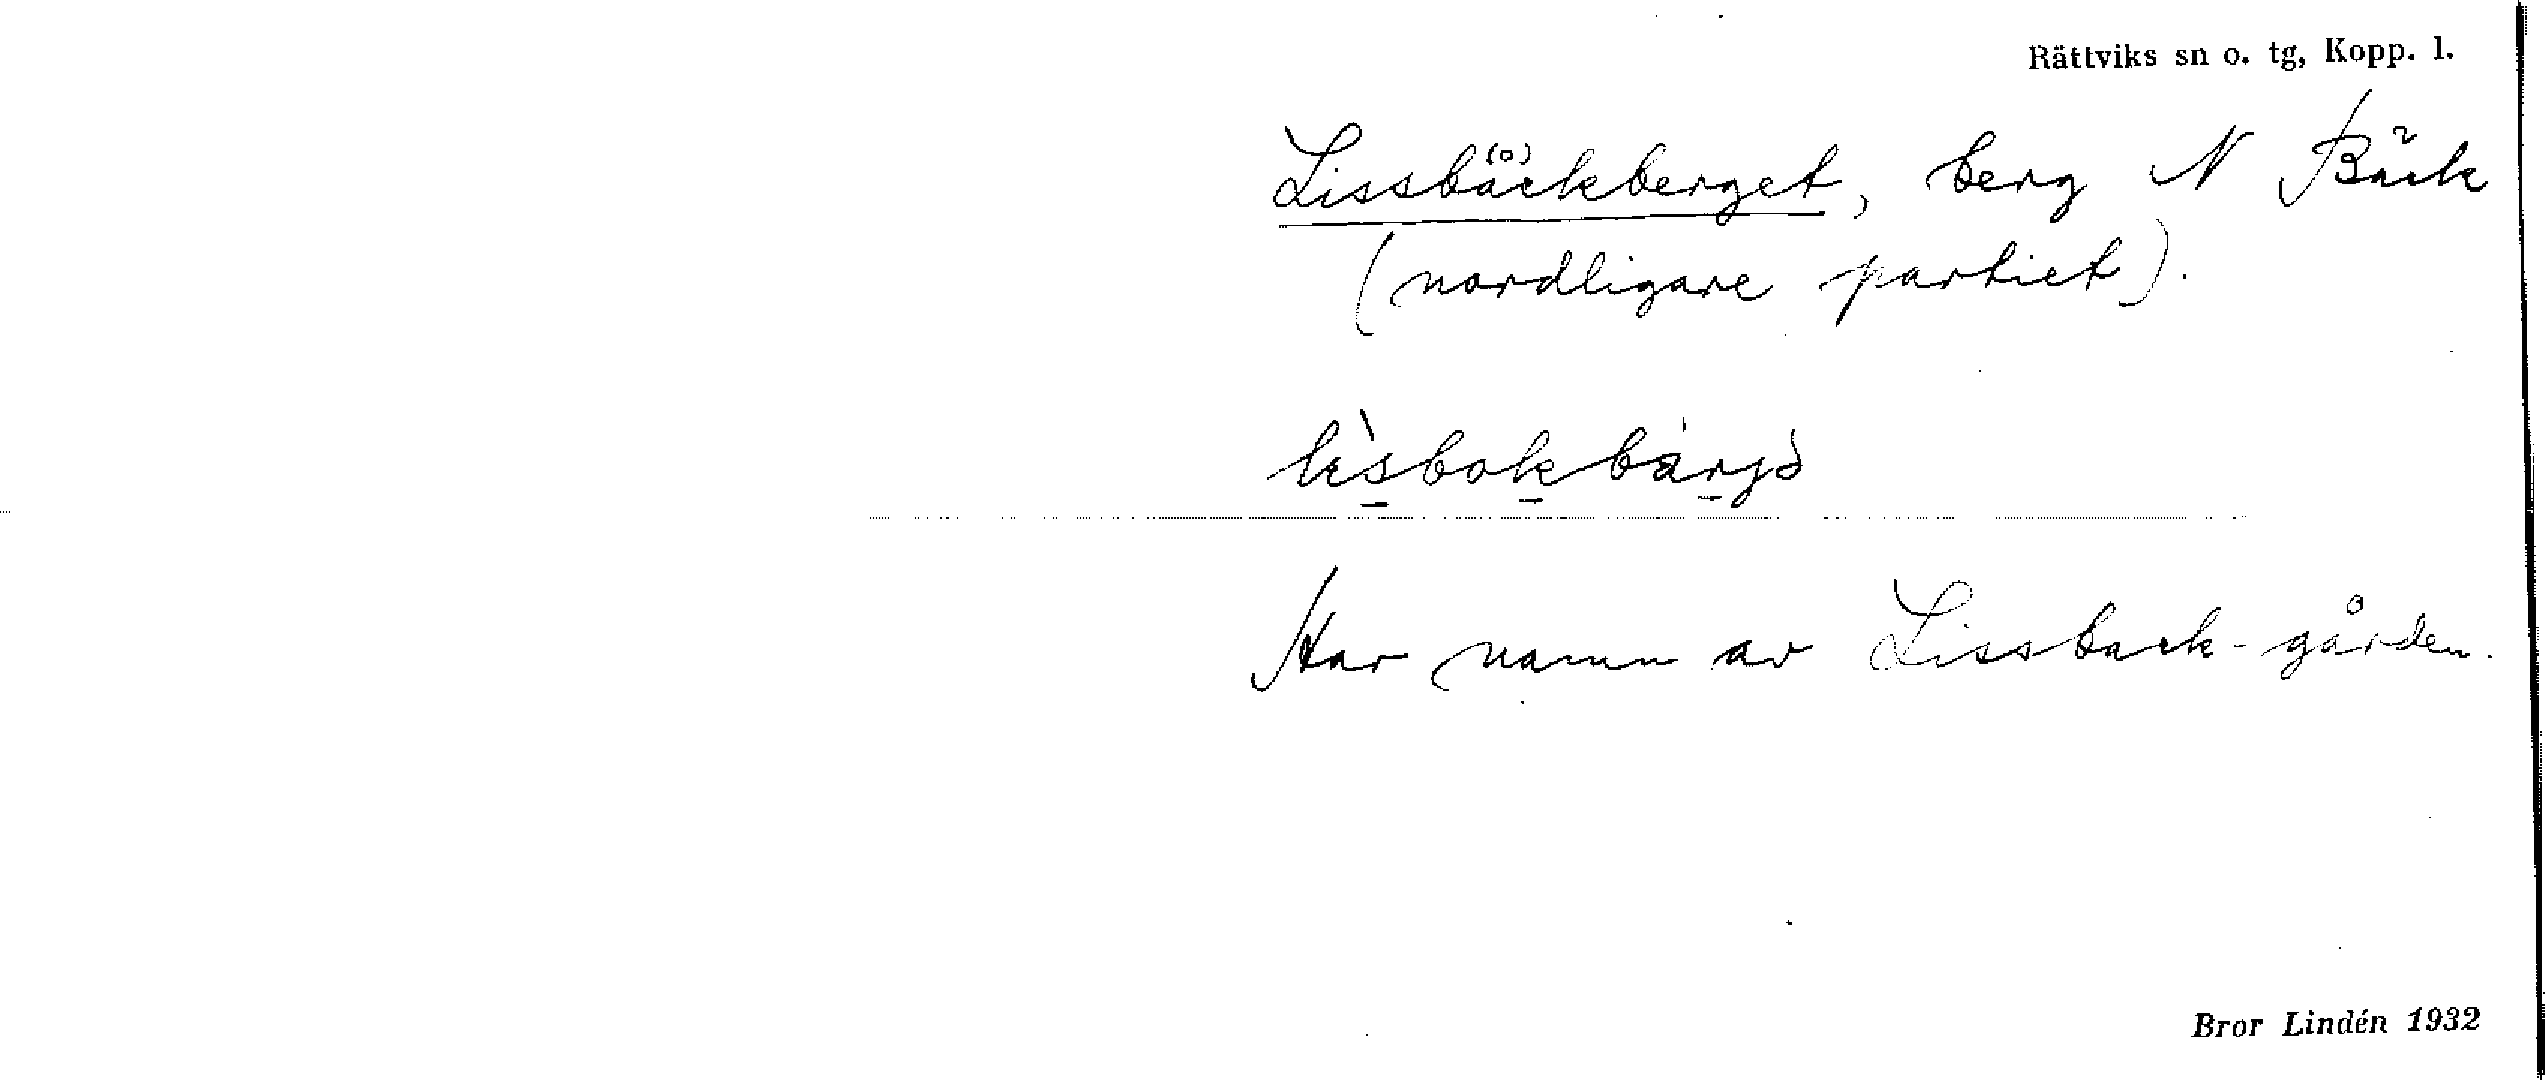 Rättviks sn o. tg, Kopp. l.
Lissbäckberget, berg N Bäck
(nordligare partiet).
Har namn av Lissback-gården.
Bror Lindén 1932